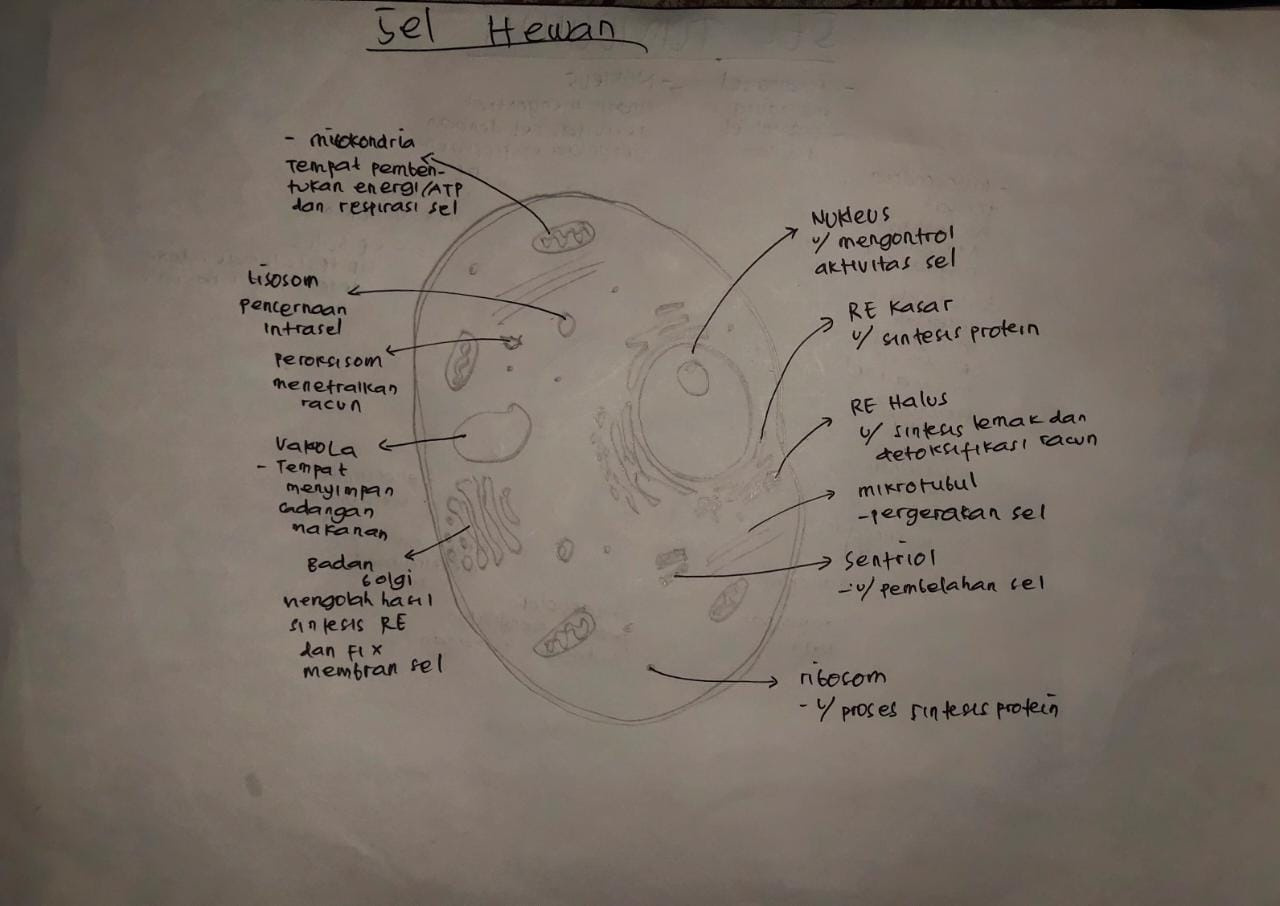 Sel Hewan
- mitokondria
Tempat pemben-
tukan energi/ATP
dan respirasi sel
Lisosom
pencernaan
intrasel
Peroksisom
menetralkan
racun
Vakola
- Tempat
menyimpan
cadangan
makanan
Badan
Golgi
mengolah hasil
sintesis RE
dan
membran sel
Nukleus
u/ mengontrol
aktivitas sel
RE Kasar
u/ sintesis protein
RE Halus
u/ sintesis lemak dan
detoksifikasi racun
mikrotubul
- pergerakan sel
Sentriol
- u/ pembelahan sel
ribosom
- u/ proses sintesis protein